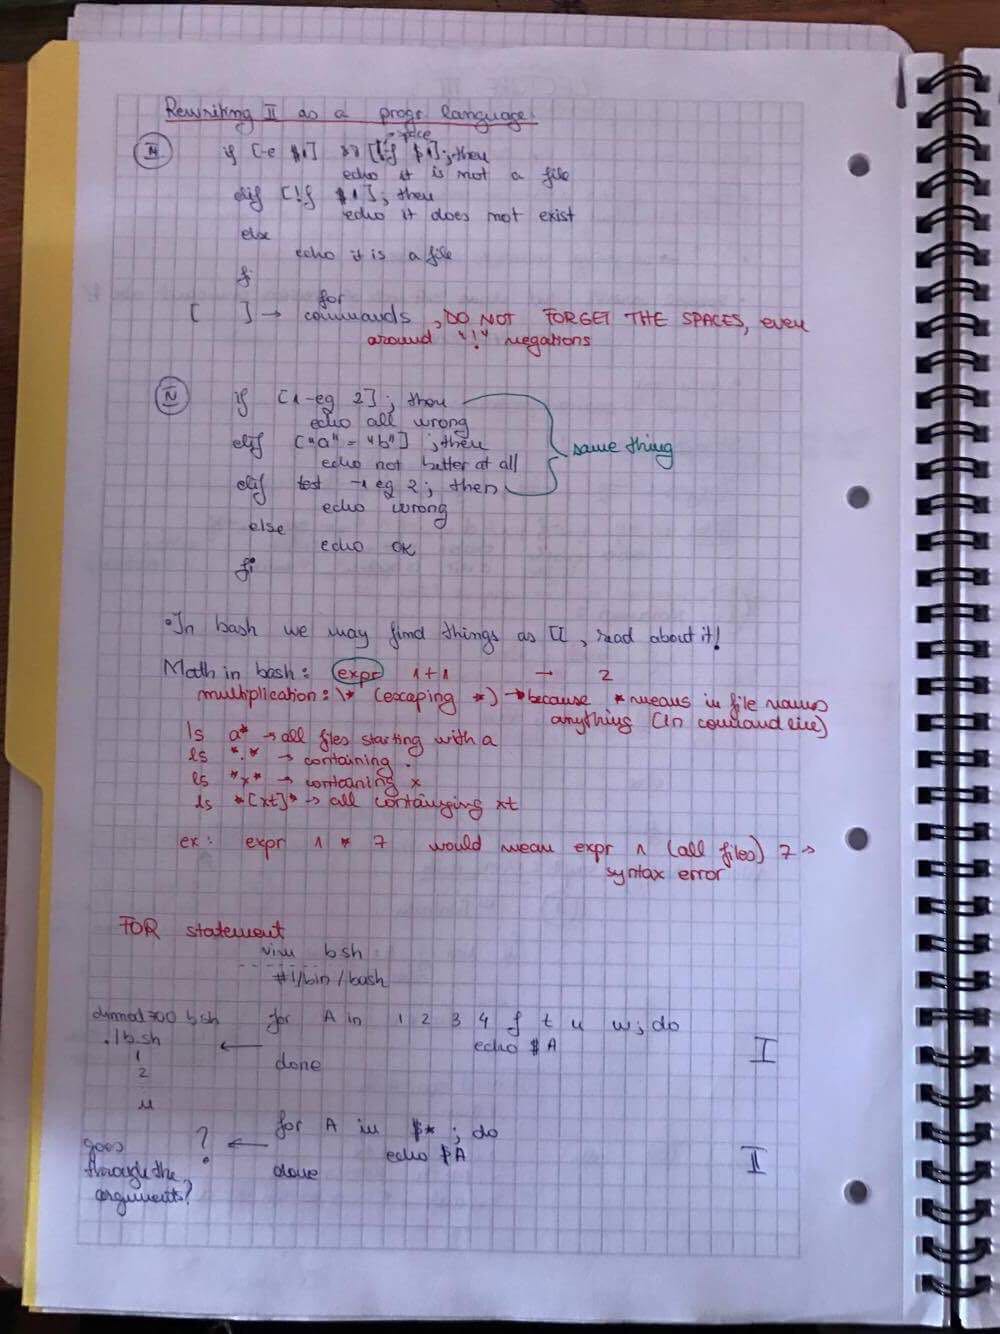 Rewriting II as a progr language:
space
if [-e $1] && [!-f $1]; then
echo it is not a file
elif [!f $1]; then
echo it does not exist
else
echo it is a file
fi
for
[ ] → commands, DO NOT FORGET THE SPACES, even
around "!" negations
IV if [1 -eg 2]; then
echo all wrong
elif ["a" = "b"]; then
same thing
echo not better at all
elif test 1 eg 2; then
echo wrong
else
echo OK
fi
• In bash we may find things as [[, read about it!
Math in bash: expr 1+1 → 2
multiplication: \* (escaping *) → because * means in file names
anything (in command line)
ls a* → all files starting with a
ls *.* → containing .
ls *x* → containing x
ls *[xt]* → all containying xt
ex: expr 1 * 7 would mean expr 1 (all files) 7 →
syntax error
FOR statement
vim bsh
#!/bin/bash
chmod 700 bsh for A in 1 2 3 4 f t u w; do
./bsh ← echo $A I
1 done
2
u
for A in $*; do
goes ? ← echo $A II
through the done
arguments?